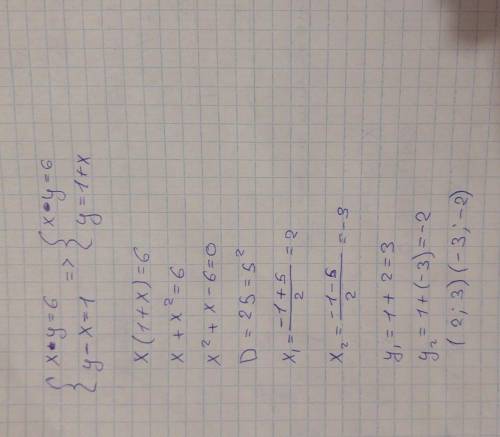 { x•y=6 => { x•y=6
{ y-x=1 { y=1+x
x(1+x)=6
x+x²=6
x²+x-6=0
D=25=5²
x₁=(-1+5)/2=2
x₂=(-1-5)/2=-3
y₁=1+2=3
y₂=1+(-3)=-2
(2;3)(-3;-2)